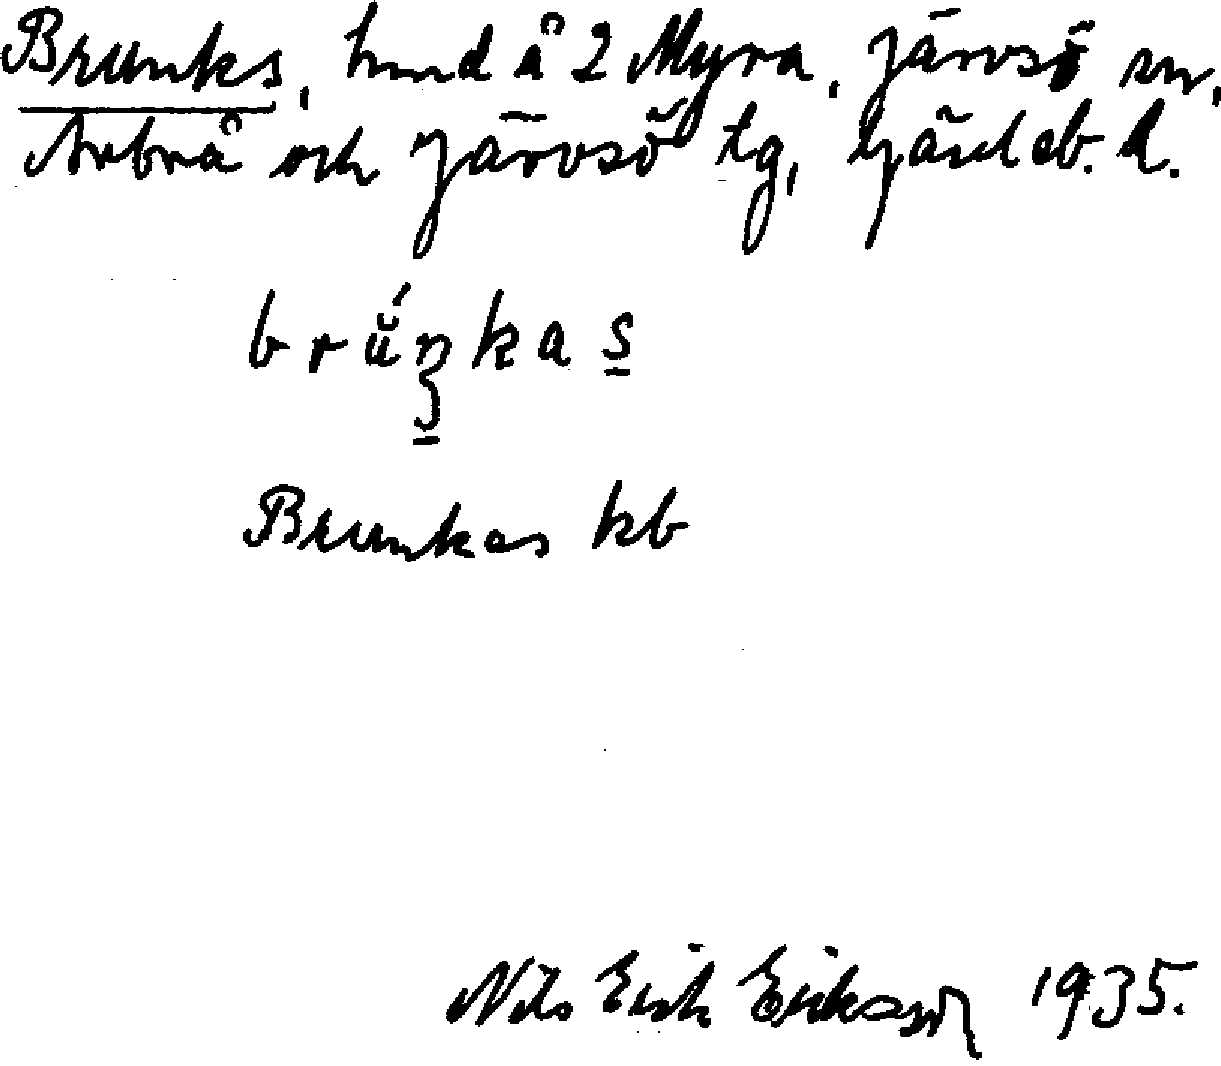 Brunks, hmd å 2 Myra, Järvsö sn,
Arbrå och Järvsö tg, Gävleb. l.
Brunkas kb
Nils Erik Eriksson 1935.